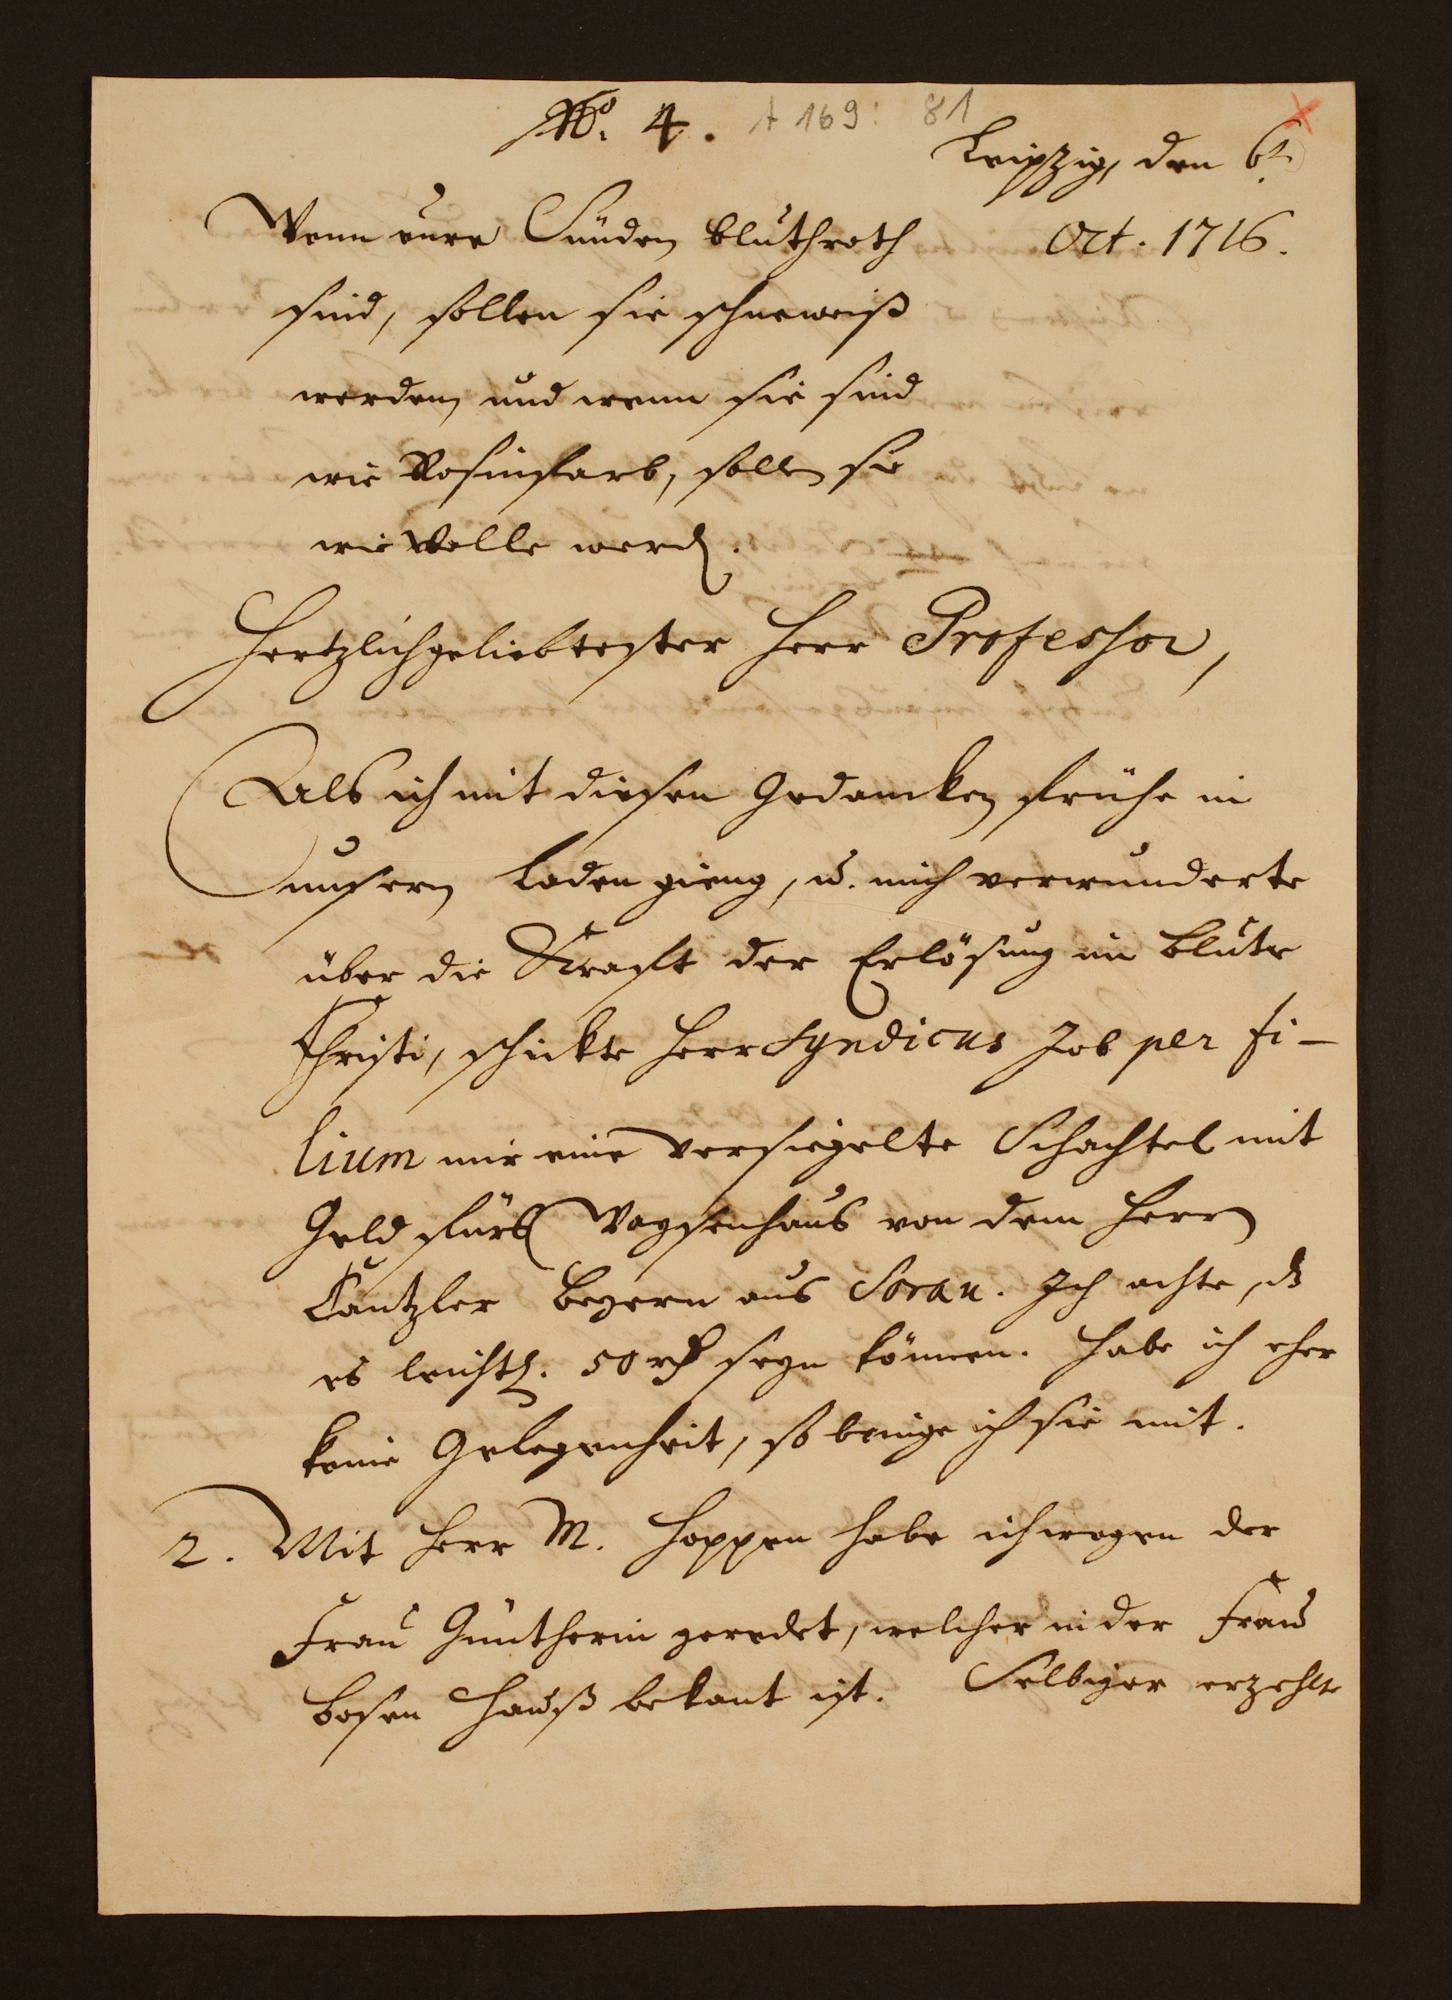 No. 4. A 169: 81
Leipzig, den 6t.
Oct. 1716.
Wenn eure Sünden bluthroth
sind, sollen sie schneeweiß
werden, und wenn sie sind
wie Rosinfarb, sollen sie
wie Wolle werd.
Hertzlichgeliebtester Herr Professor,
Als ich mit diesen Gedancken frühe in
unsern Laden gieng, u. mich verwunderte
über die Krafft der Erlösung im Blute
Christi, schickte Herr Syndicus Job per fi-
lium mir eine versiegelte Schachtel mit
Geld fürs Waysenhaus von dem Herrn
Cantzler Beyern aus Sorau. Ich achte, dz
es leichtl. 50 rh seyn können. Habe ich eher
keine Gelegenheit, so bringe ich sie mit.
2. Mit Herr M. Hoppen habe ich wegen der
Frau Güntherin geredet, welcher in der Frau
Bosen Hauß bekant ist. Selbiger erzehlte